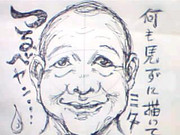 何も見ずに描いて
ミタ
つるべヤン